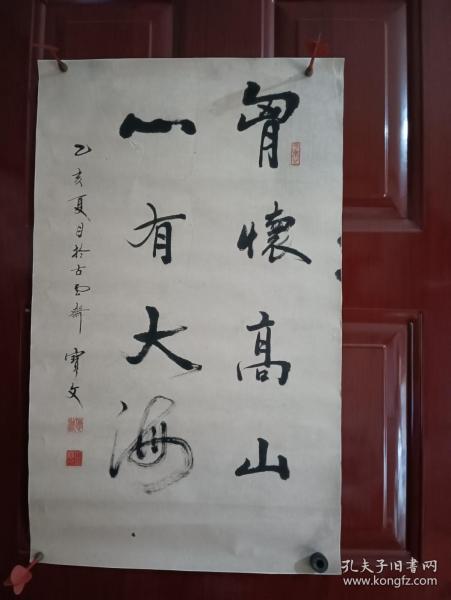 胷懷高山
心有大海
乙亥夏日於古雪齋 寶文
孔夫子旧书网
www.kongfz.com